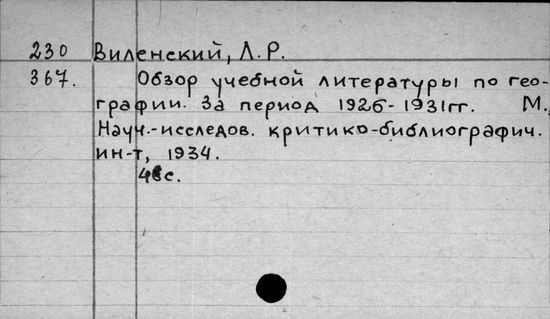 230 Виленский, Л.Р.
367. Обзор учебной литературы по гео-
графии. За период 1926-1931гг. М.,
Науч.-исследов. критико-библиографич.
ин-т, 1934.
48с.